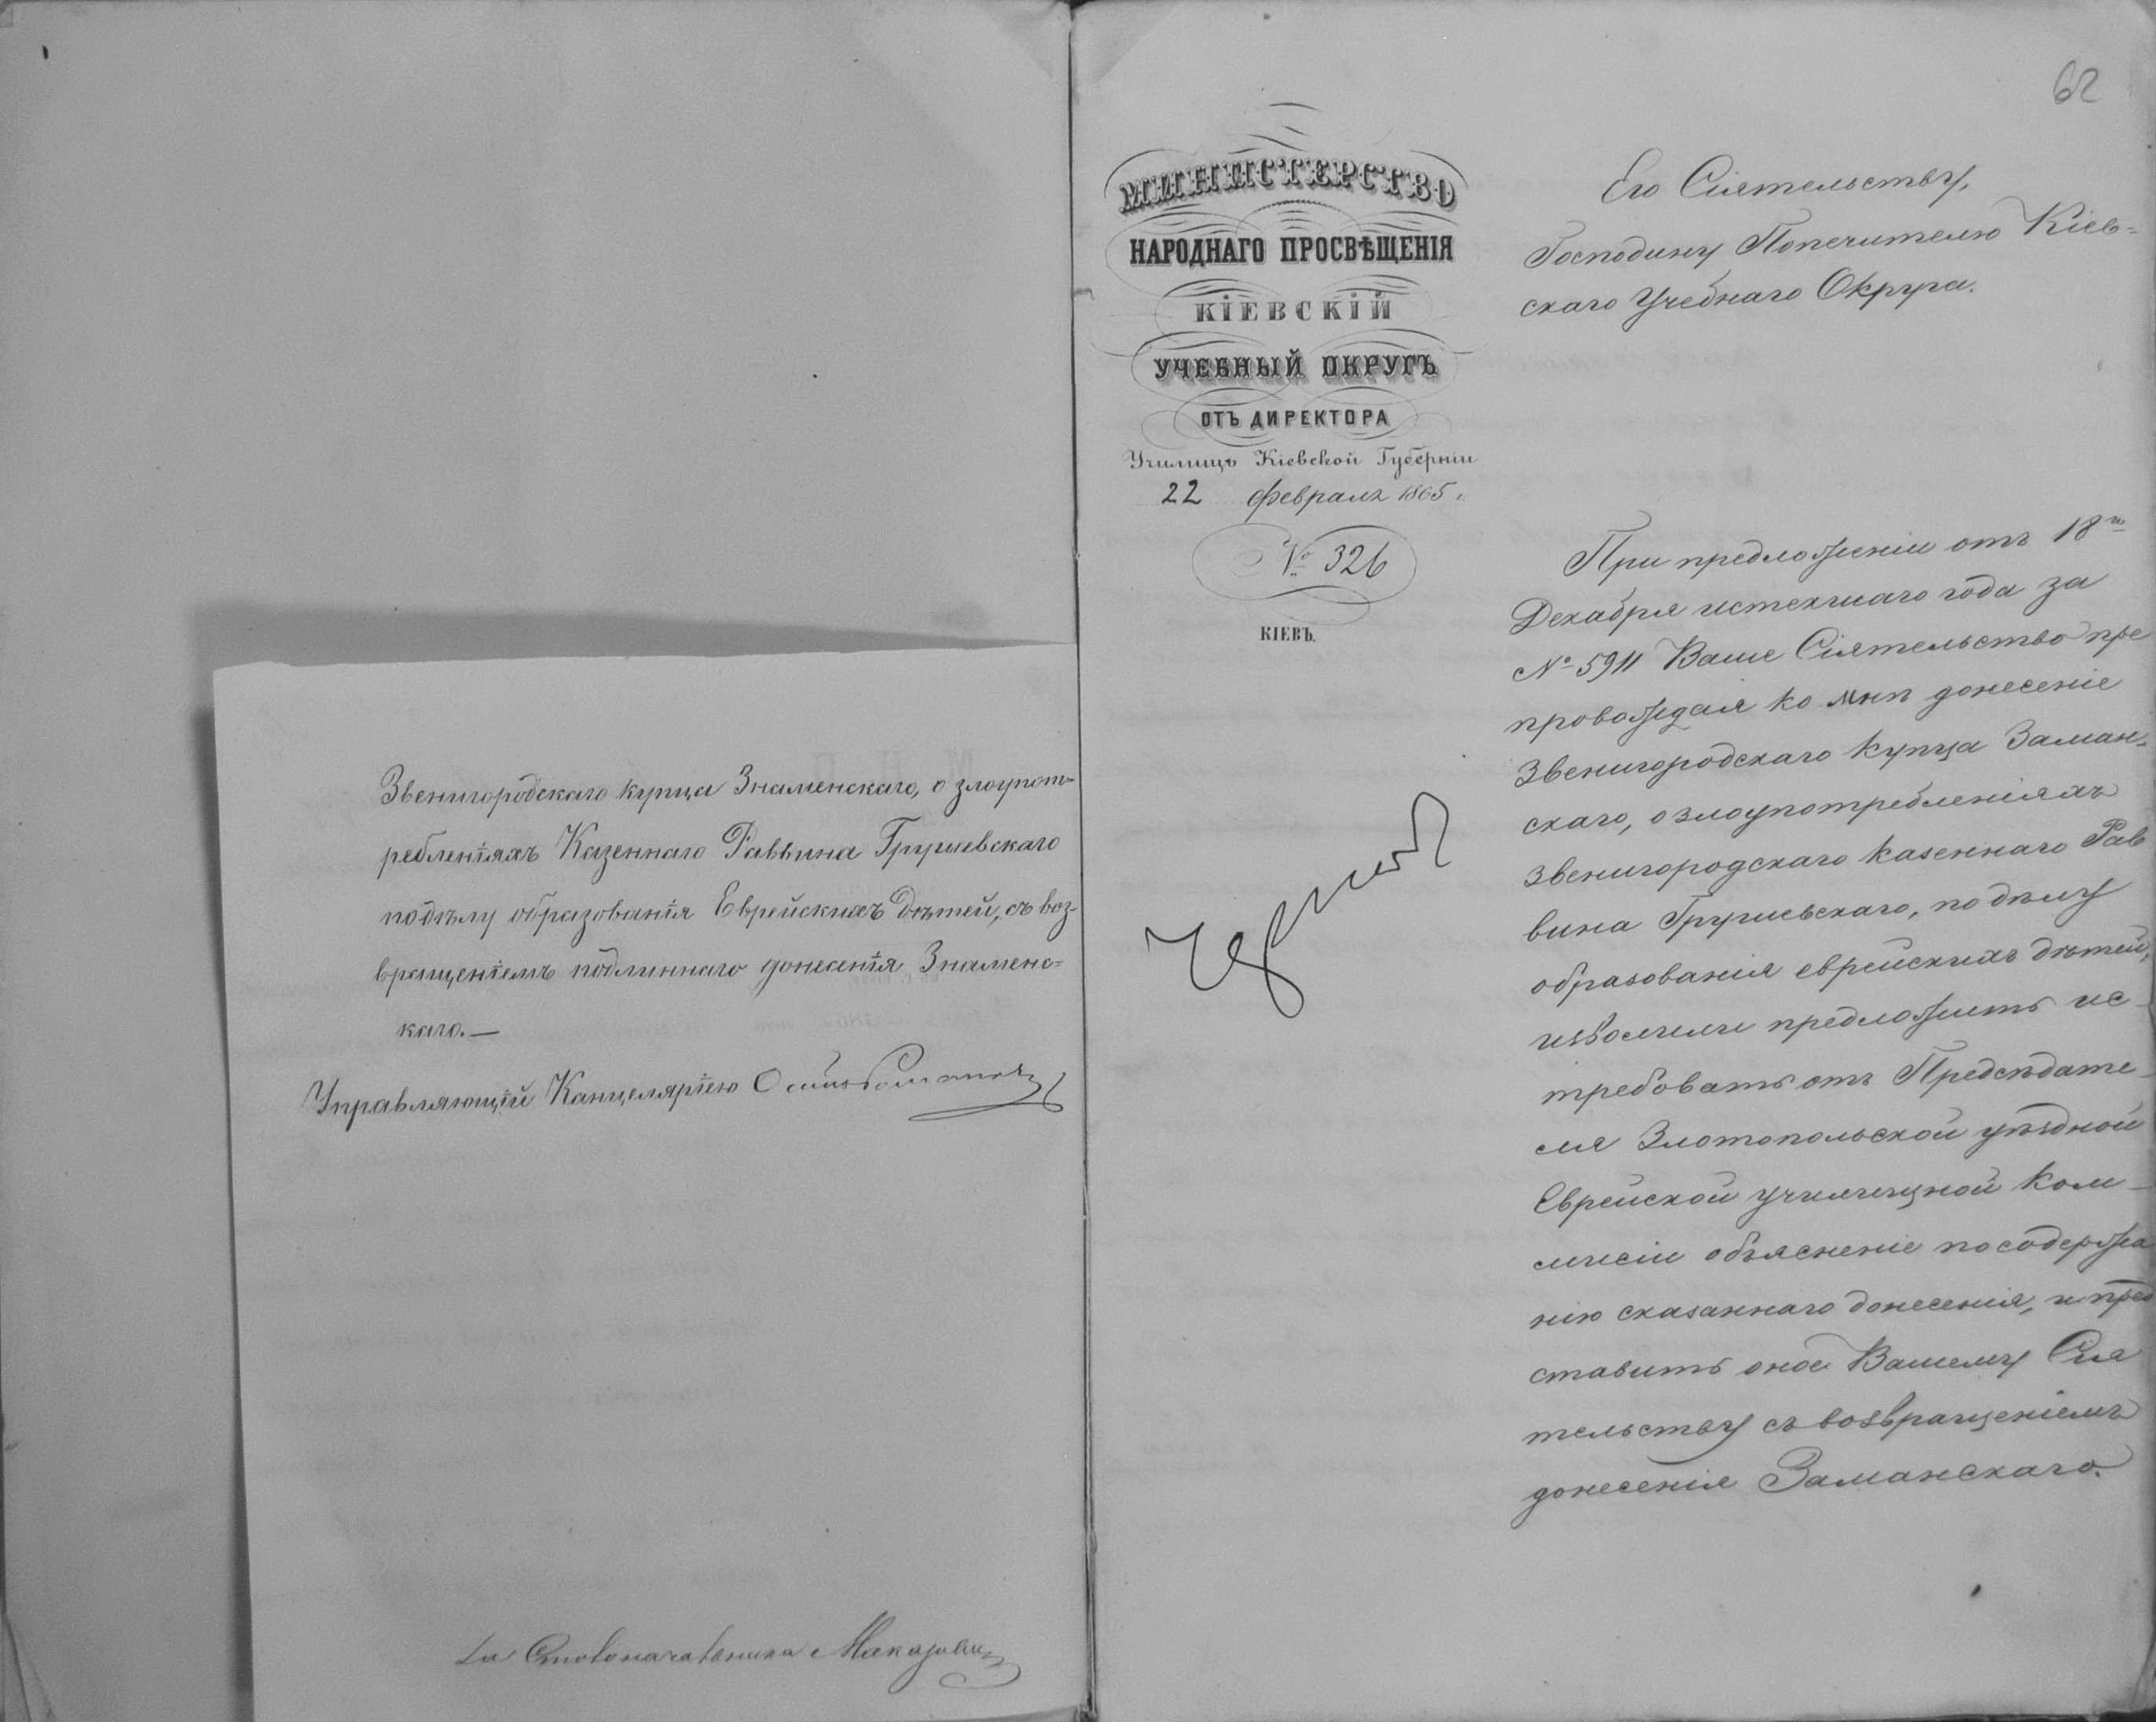 Звенигородскаго купца Знаменскаго, о злоупот=
ребленіяхъ Казеннаго Раввина Грушевскаго
по дѣлу образованія Еврейскихъ дѣтей, съ воз-
вращеніемъ подлиннаго донесенія Знаменс=
каго.—
Управляющій Канцеляріею
За Столоначальника
62
МИНИСТЕРСТВО
НАРОДНАГО ПРОСВѢЩЕНІЯ
КІЕВСКІЙ
УЧЕБНЫЙ ОКРУГЪ
ОТЪ ДИРЕКТОРА
Училищъ Кіевской Губерніи
22 Февраля 1865 г.
№ 326
КІЕВЪ.
Его Сіятельству,
Господину Попечителю Кіев=
скаго Учебнаго Округа.
При предложеніи отъ 18го
Декабря истекшаго года за
№ 5911 Ваше Сіятельство пре
провождая ко мнѣ донесеніе
Звенигородскаго купца Заман-
скаго, о злоупотребленіяхъ
Звенигородскаго казеннаго Рав
вина Грушевскаго, по дѣлу
образованія еврейскихъ дѣтей,
изволили предложить ис-
требовать отъ Предсѣдате-
ля Злотопольской уѣздной
Еврейской училищной Ком-
мисіи объясненіе по содержа
нію сказаннаго донесенія, и пред
ставить оное Вашему Сія
тельству съ возвращеніемъ
донесенія Заманскаго.